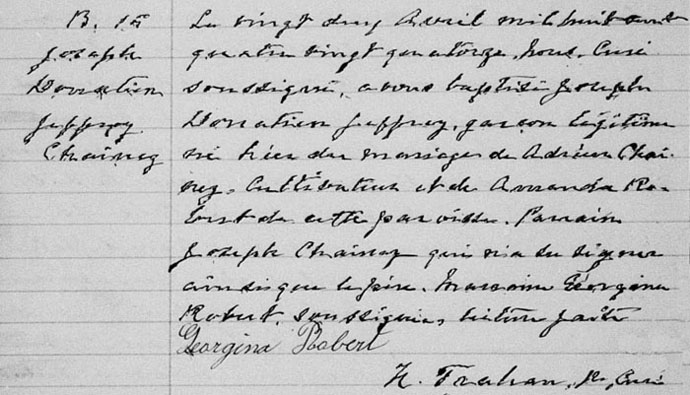 B. 15
Joseph
Donatien
Jeffrey
Chainey
Le vingt deux Avril mil huit cent
quatre vingt quatorze, nous, Curé
soussigné, avons baptisé Joseph
Donatien Jeffrey, garçon légitime
né hier du mariage de Adrien Chai-
ney, Cultivateur et de Amanda Ro-
bert de cette paroisse. Parrain
Joseph Chainey qui n'a su signer
ainsi que le père. Marraine Georgina
Robert, soussignée, lecture faite
Georgina Robert
H. Trahan, Ptre, Curé